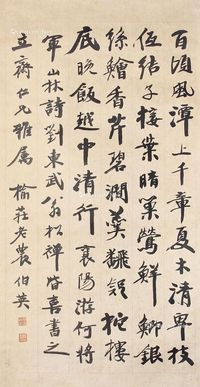 百頃風潭上千章夏木清卑枝
低結子接葉暗巢鶯鮮鯽銀
絲鱠香芹碧澗羹飜疑柁樓
底晚飯越中清行襄陽游何將
軍山林詩劉東武翁松禪皆喜書之
立齋仁兄雅屬 榆莊老農伯英